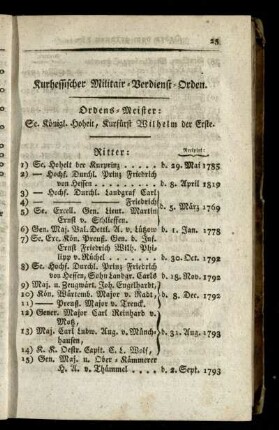 25
Kurhessischer Militair-Verdienst-Orden.
Ordens-Meister:
Se. Königl. Hoheit, Kurfürst Wilhelm der Erste.
Ritter:
Recipirt:
1) Se. Hoheit der Kurprinz . . . . . b. 29. Mai 1785
2) — Hochf. Durchl. Prinz Friedrich
von Hessen . . . . . . . b. 8. April 1819
3) — Hochf. Durchl. Landgraf Carl
4) — — — Friedrich
5) Se. Excell. Gen. Lieut. Martin
Ernst v. Schlieffen.
b. 5. März 1769
6) Gen. Maj. Val. Dettl. A. v. Lützow b. 1. Jan. 1778
7) Se. Exc. Kön. Preuß. Gen. d. Inf.
Ernst Friedrich Wilh. Phi-
lipp v. Rüchel . . . . . . b. 30. Oct. 1792
8) Se. Hochf. Durchl. Prinz Friedrich
von Hessen, Sohn Landgr. Carls b. 18. Nov. 1792
9) Maj. u. Zeugwärt. Joh. Engelhardt,
10) Kön. Würtemb. Major v. Radt,
11) — Preuß. Major v. Trenck.
b. 8. Dec. 1792
12) Gener. Major Carl Reinhard v.
Motz,
13) Maj. Carl Ludw. Aug. v. Münch-
hausen,
b. 31. Aug. 1793
14) K. K. Oestr. Capit. C. L. Wolf,
15) Gen. Maj. u. Ober-Kämmerer
H. A. v. Thümmel . . . . b. 2. Sept. 1793